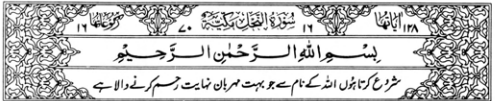 اٰیَاتُهَا ۱۲۸ ۱۶ سُوۡرَةُ النَّحۡلِ مَكِّیَّةٌ ۷۰ رُكُوۡعَاتُهَا ۱۶
بِسۡمِ اللهِ الرَّحۡمٰنِ الرَّحِیۡمِ
شروع کرتا ہوں اللہ کے نام سے جو بہت مہربان نہایت رحم کرنے والا ہے